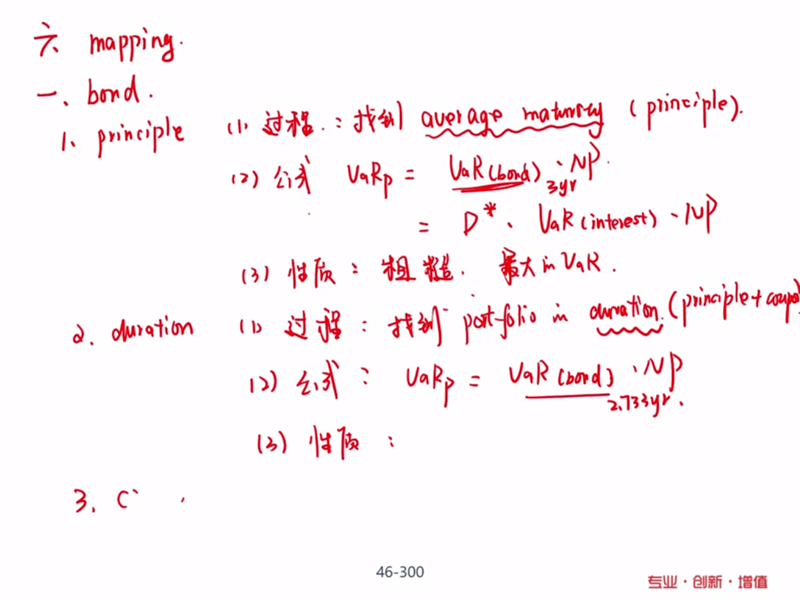 六 mapping.
一、bond.
1、principle (1) 过程：找到 average maturity (principle).
(2) 公式 VaRp = VaR(bond) · NP.
3yr
= D* · VaR(interest) · NP
(3) 性质：粗糙. 最大的VaR.
2、duration (1) 过程：找到 portfolio in duration. (principle+coupo
(2) 公式：VaRp = VaR(bond) · NP
2.733yr.
(3) 性质：
3、C
46-300
专业·创新·增值